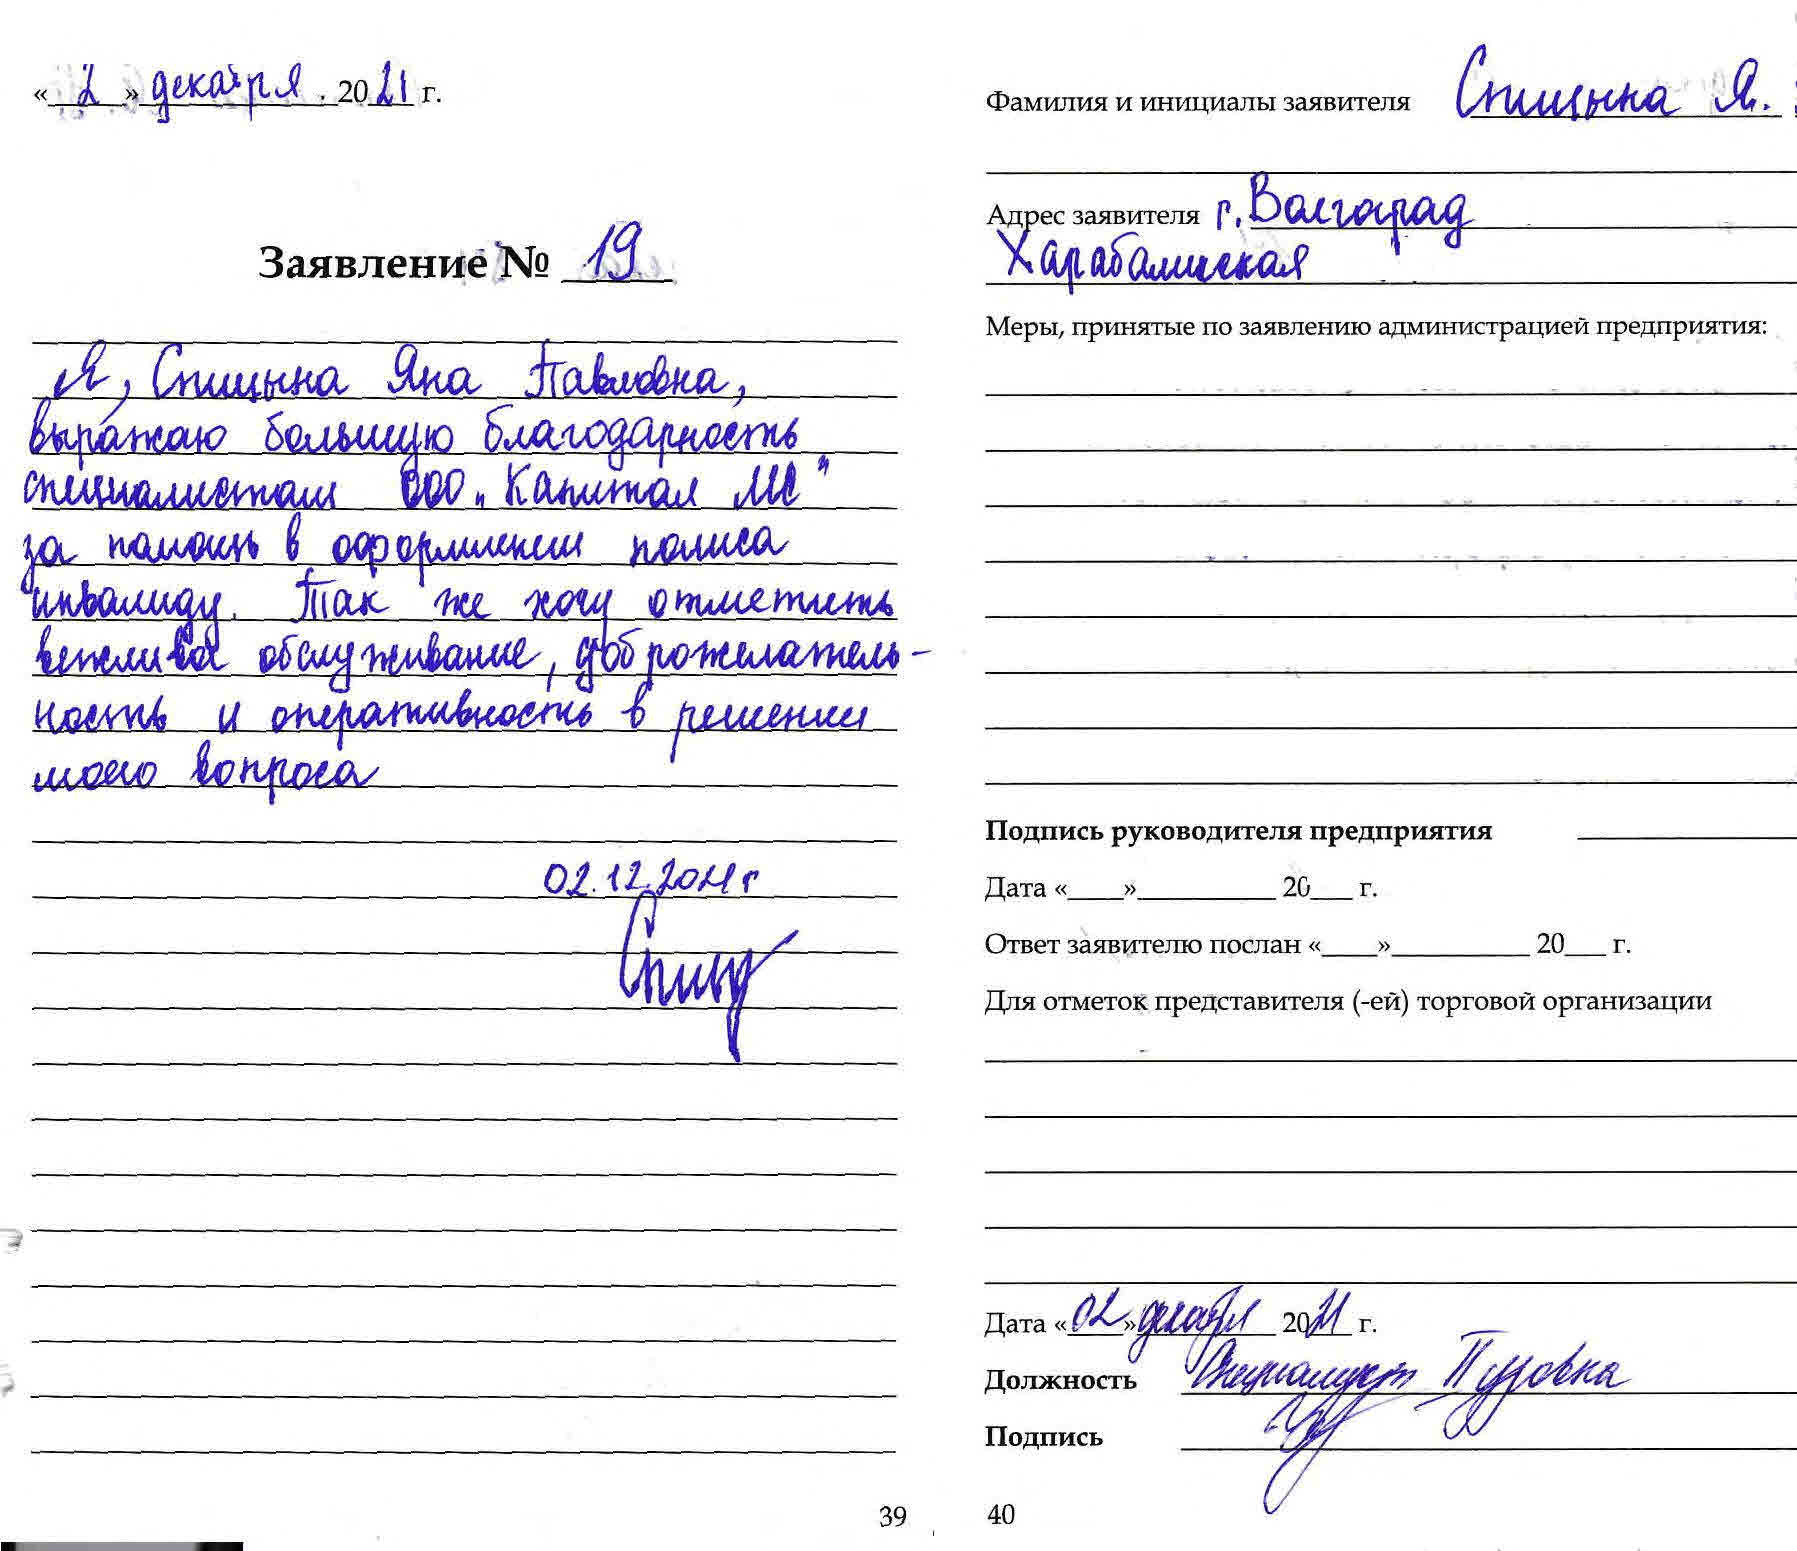 « 2 » декабря . 2021 г.
Заявление № 19
Я, Спицына Яна Павловна,
выражаю большую благодарность
специалистам ООО „Капитал МС"
за помощь в оформлении полиса
инвалиду. Так же хочу отметить
обслуживание, доброжелатель-
ность и оперативность в решении
моего вопроса
02.12.2021 г
Спиц
39
Фамилия и инициалы заявителя Спицына Я.
Адрес заявителя г. Волгоград
Харабалинская
Меры, принятые по заявлению администрацией предприятия:
Подпись руководителя предприятия
Дата «____»__________ 20___ г.
Ответ заявителю послан «____»__________ 20___ г.
Для отметок представителя (-ей) торговой организации
Дата «02» декабря 2021 г.
Должность Специалист
Подпись
40